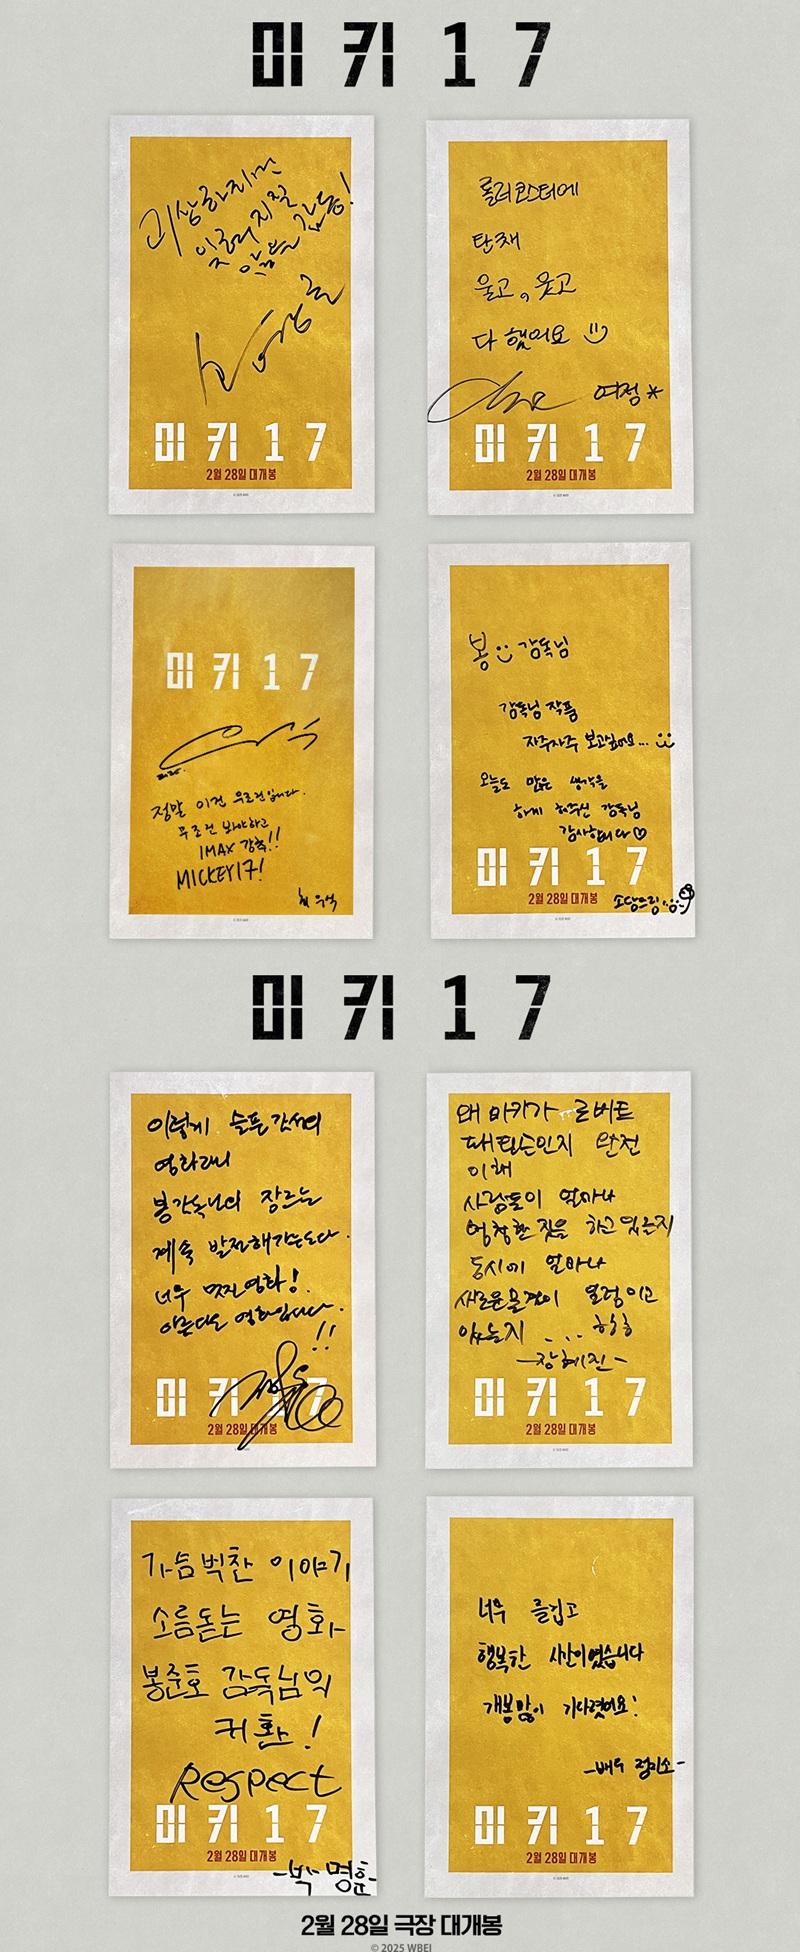 미키17
괴상하지만
있는지 감동!
롤러코스터에
탄채
울고, 웃고
다 했어요
여정*
미키17
2월 28일 대개봉
미키17
2월 28일 대개봉
미키17
정말 이건 무조건입니다.
무조건 봐야하고
IMAX 강추!!
MICKEY17!
최우식
봉 감독님
감독님 작품
자주자주 보고싶어요...
오늘도 많은 생각을
하게 해주신 감독님
감사합니다♡
미키17
2월 28일 대개봉
소담드림
미키17
이렇게 슬픈 감성의
영화라니
봉감독님의 장르는
계속 발전해가는도다.
너무 멋진영화!
아름다운 영화입니다.
!!
미키17
2월 28일 대개봉
왜 미키가 로버트
패틴슨인지 완전
이해
사람들이 얼마나
멍청한 짓을 하고 있는지
동시에 얼마나
새로운 열정이고
있는지 ... 하하
-장혜진-
미키17
2월 28일 대개봉
가슴벅찬 이야기
소름돋는 영화
봉준호 감독님의
귀환!
Respect
미키17
2월 28일 대개봉
-박명훈-
너무 즐겁고
행복한 시간이였습니다
개봉만이 기다렸어요!
-배우 정이소-
미키17
2월 28일 대개봉
2월 28일 극장 대개봉
© 2025 WBEI